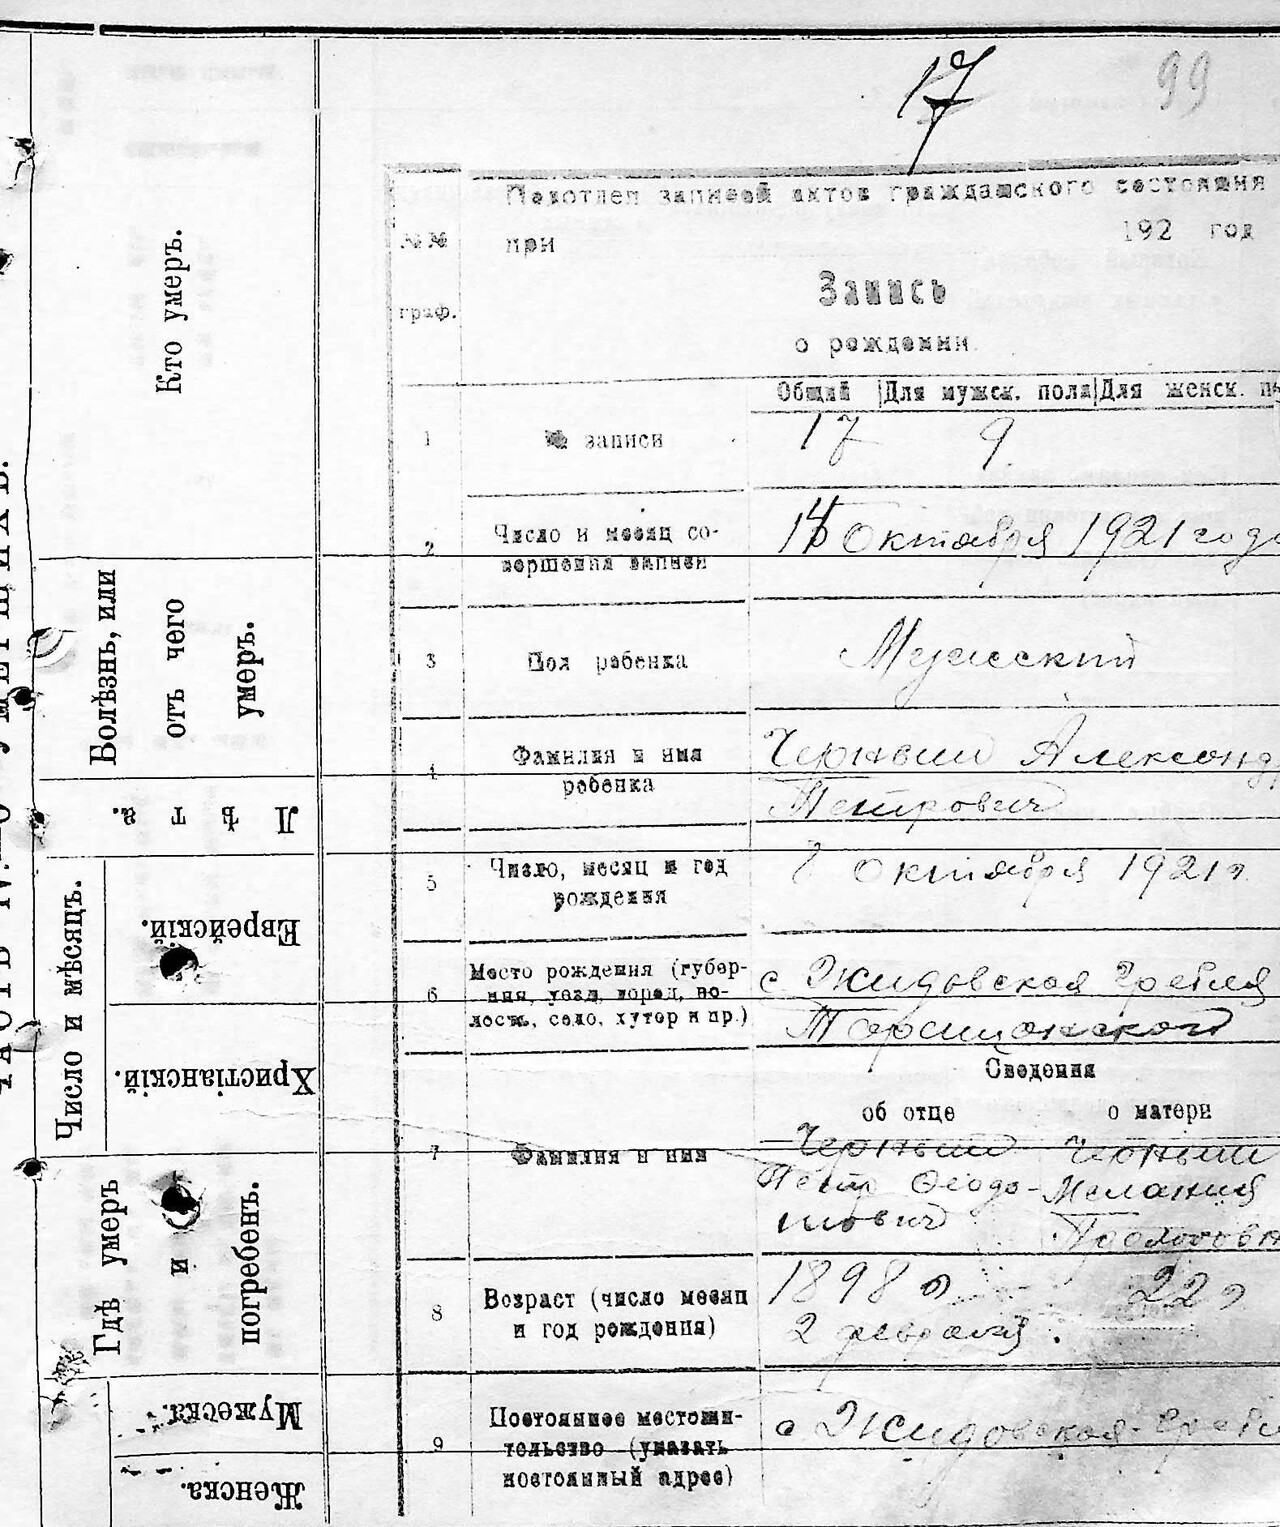 17 99
Подотдел записей актов гражданского состояния
при 192 год
№№
граф.
Запись
о рождении
Общий Для мужск. пола Для женск.
1 № записи 17 9
2 Число и месяц со-
вершения записи
14 Октября 1921 года
3 Пол ребенка Мужеский
4 Фамилия и имя
ребенка
Черныш Александр
Петрович
5 Число, месяц и год
рождения
8 Октября 1921 г
6 Место рождения (губер-
ния, уезд, город, во-
лость, село, хутор и пр.)
с Жидовская Гребля
Таращанского
Сведения
об отце о матери
7 Фамилия и имя
Черныш Черныш
Петр Федо- Мелания
тович
8 Возраст (число месяц
и год рождения)
1898 г 22 г
2 февраля.
9 Постоянное местожи-
тельство (указать
постоянный адрес)
с. Жидовская-
Кто умеръ.
Болѣзнь, или
отъ чего
умеръ.
Лѣта.
Число и мѣсяцъ.
Еврейскій.
Христіанскій.
Гдѣ умеръ
и
погребенъ.
Мужеска.
Женска.